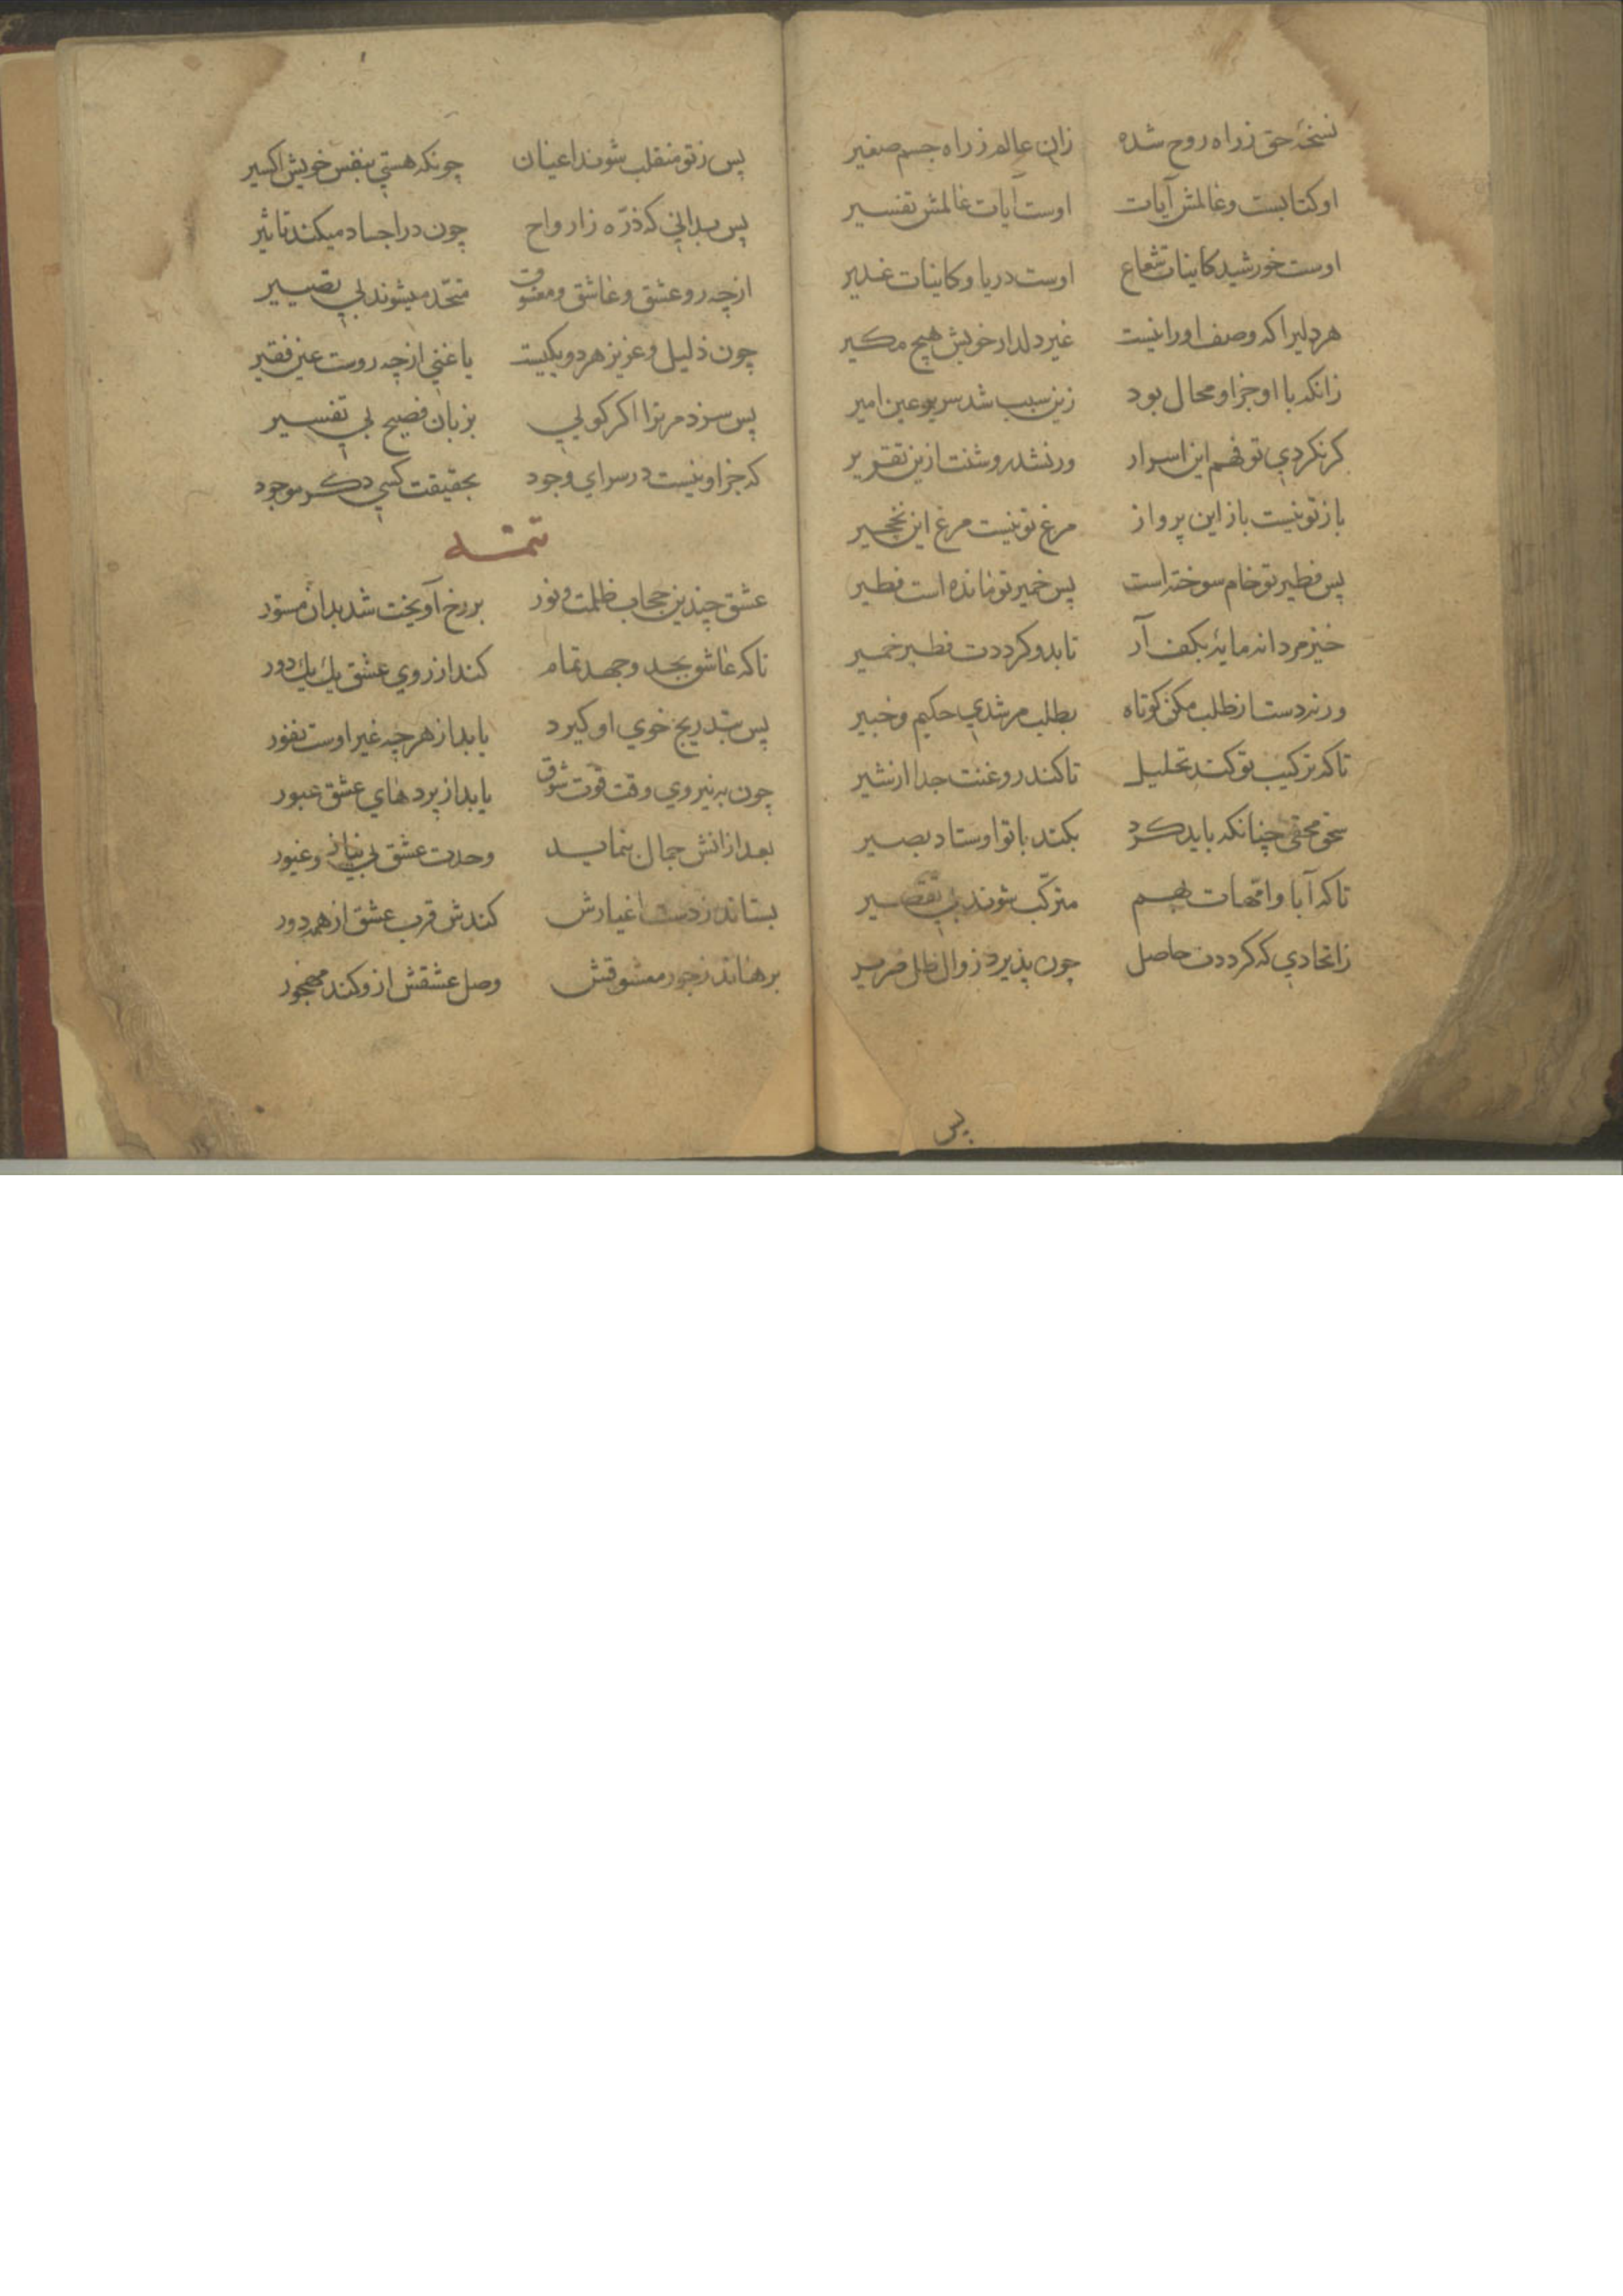 نسخهٔ حق ز راه روح شده زان عالم ز راه جسم صغیر
او کتابست و عالمش آیات اوست آیات عالمش تفسیر
اوست خورشید کاینات شعاع اوست دریا و کاینات غدیر
هر دلیرا که وصف او را نیست غیر دلدار خویش هیچ مکیر
زانکه با او جز او محال بود زین سبب شد سریر عین امیر
کر نکردی تو فهم این اسرار ور نشد روشنت ازین تقریر
باز تو نیست باز این پرواز مرغ تو نیست مرغ این نخچیر
پس فطیر تو خام سوخته است پس خمیر تو مانده است فطیر
خیز مردانه مایهٔ بکف آر تا بدو کرددت فطیر خمیر
ورنه دست از طلب مکن کوتاه بطلب مرشدی حکیم و خبیر
تا که ترکیب تو کند تحلیل تا کند روغنت جدا از شیر
سحق محقی چنانکه باید کرد بکند با تو اوستاد بصیر
تا که آبا و امّهات بهم مترکّب شوند بی تقصیر
زاتحادی که کرددت حاصل چون پذیرد زوال ظل ضریر
پس
پس ز تو منقلب شوند اعیان چونکه هستی بنفس خویش اکسیر
پس بدانی که ذرّه ز ارواح چون در اجساد میکند تاثیر
از چه رو عشق و عاشق و معشوق متحّد میشوند بی تغییر
چون ذلیل و عزیز هر دو یکیست یا غنی از چه روست عین فقیر
پس سزد مر ترا اکر کویی بزبان فصیح بی تفسیر
که جز او نیست در سرای وجود بحقیقت کسی دکر موجود
تتمّه
عشق چندین حجاب ظلمت و نور بر رخ آویخت شد بدان مستور
تا که عاشق بجد و جهد تمام کند از روی عشق یک یک دور
پس بتدریج خوی او کیرد یابد از هر چه غیر اوست نفور
چون به نیروی وقت قوّت شوق یابد از پردهای عشق عبور
بعد از انش جمال بنماید وحدت عشق بی نیاز و غیور
بستاند ز دست اغیارش کندش قرب عشق از همه دور
برهاند ز جور معشوقش وصل عشقش ازو کند مهجور